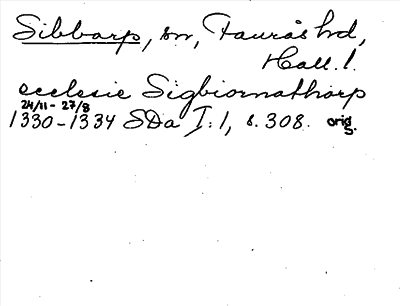 Sibbarp, sn, Faurås hd,
Hall. l.
ecclesie Sigbiornathorp
24/11 - 27/8
1330-1334 SDa I: 1, s. 308. orig.